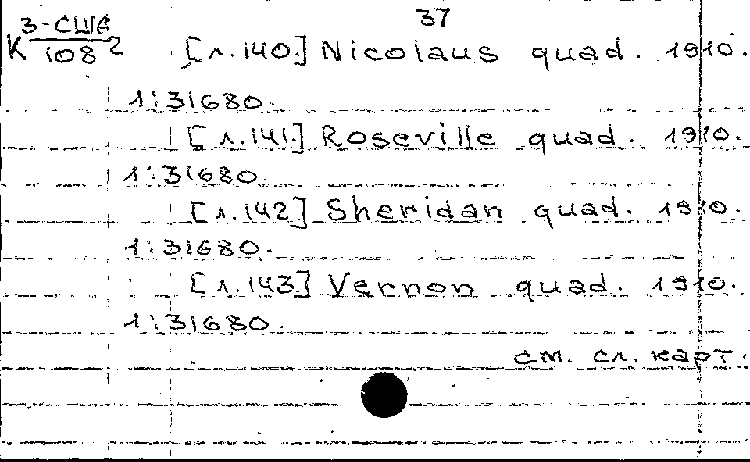 37
К 3-США/108 2 [л.140] Nicolaus quad. 1910.
1:31680.
[л.141] Roseville quad. 1910.
1:31680.
[л.142] Sheridan quad. 1910.
1:31680.
[л.143] Vernon quad. 1910.
1:31680.
см. сл. карт.